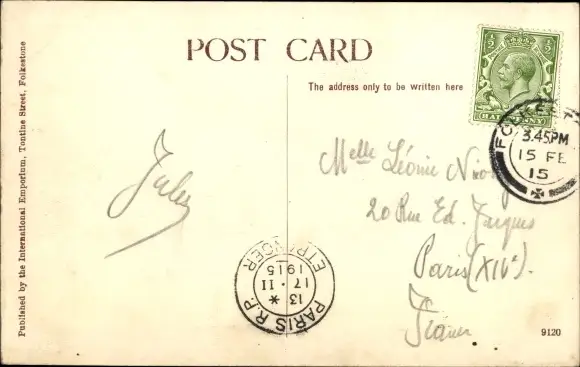 Published by the International Emporium, Tontine Street, Folkestone
POST CARD
The address only to be written here
½ ½
HALFPENNY
FOLKEST
3.45PM
15 FE
15
Jules
Melle Léonie
20 Rue Ed. Jacques
Paris (XIVe).
France
PARIS R.P.
13 *
17 · II
1915
ETRANGER
9120